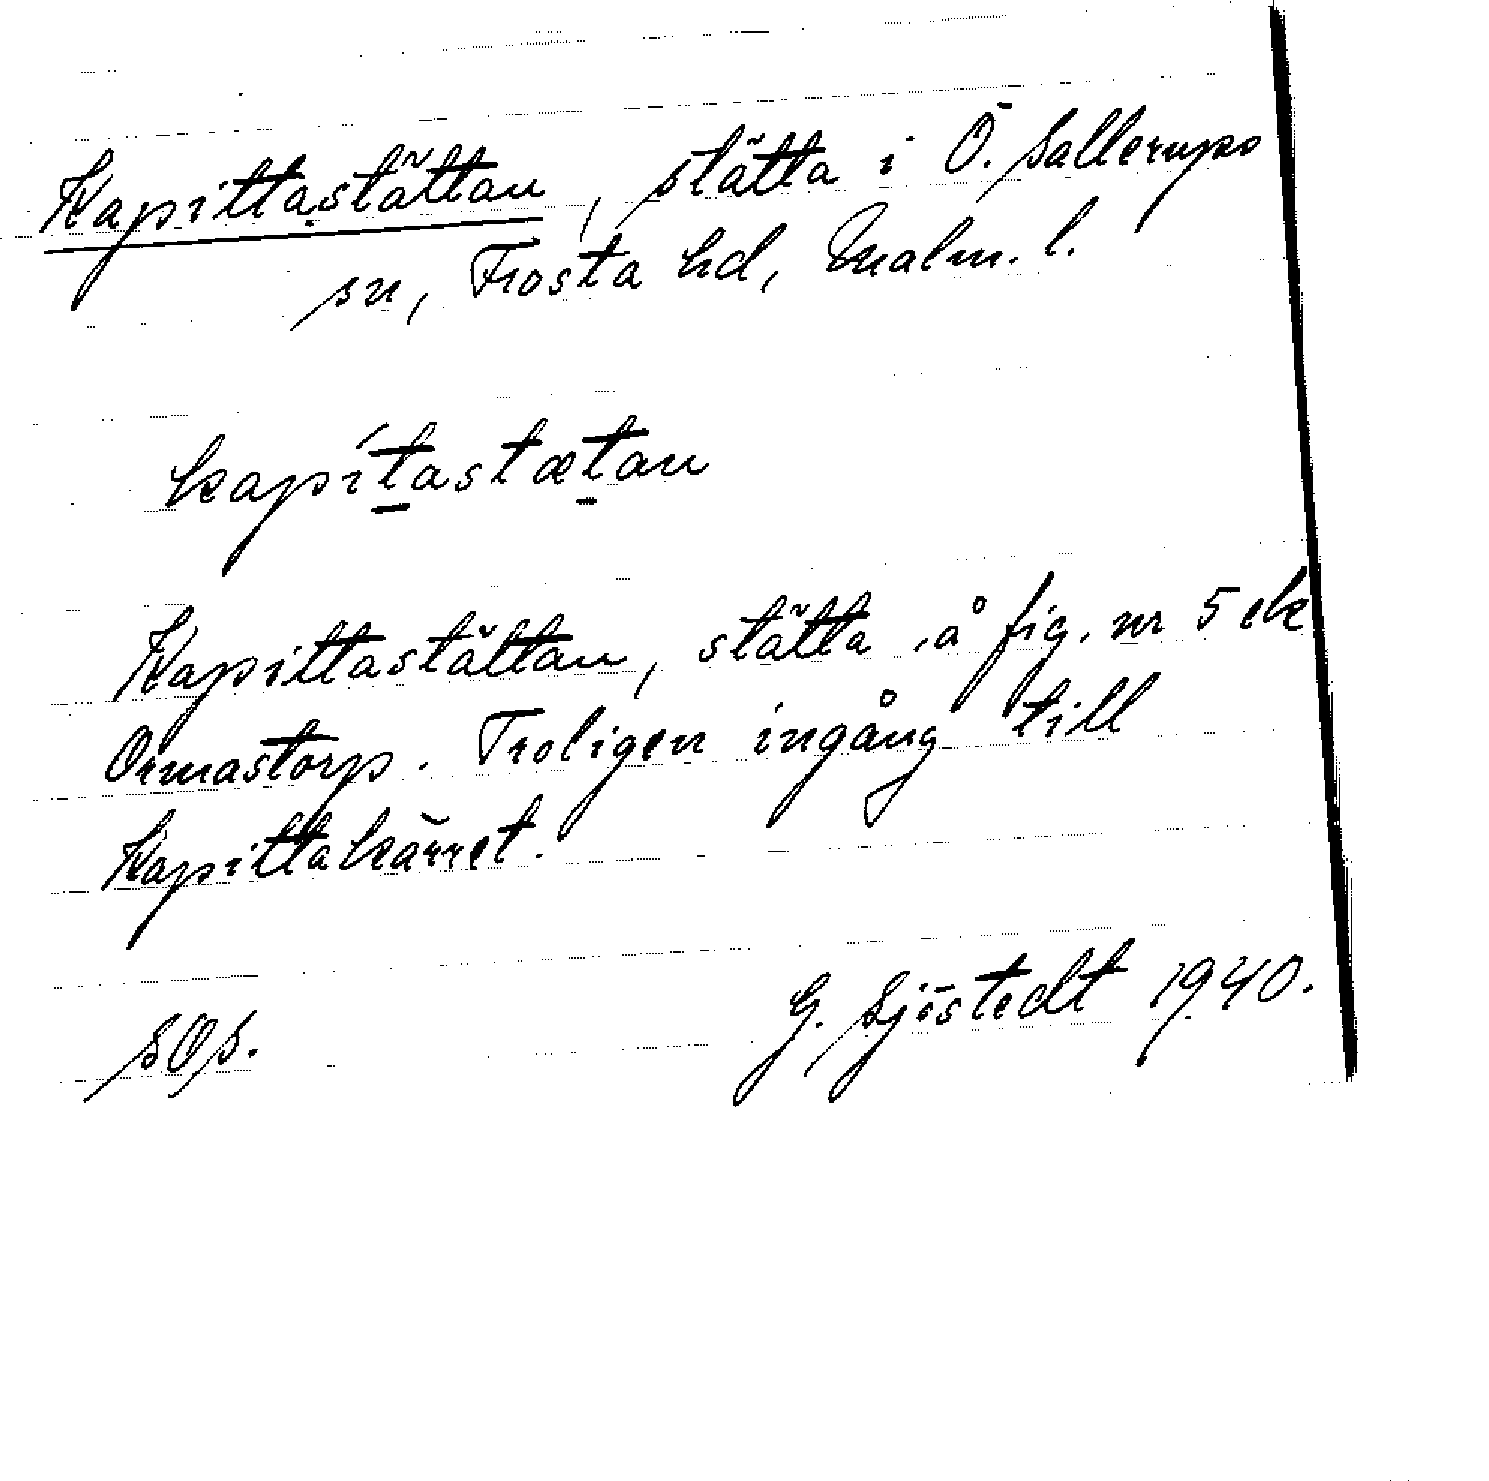 Kapittastättan, stätta i Ö. Sallerups
sn, Frosta hd, Malm. l.
kapít̠astæt̠an
Kapittastättan, stätta å fig. nr 5 ek
Ormastorp. Troligen ingång till
Kapittakärret.
SOS. G. Sjöstedt 1940.